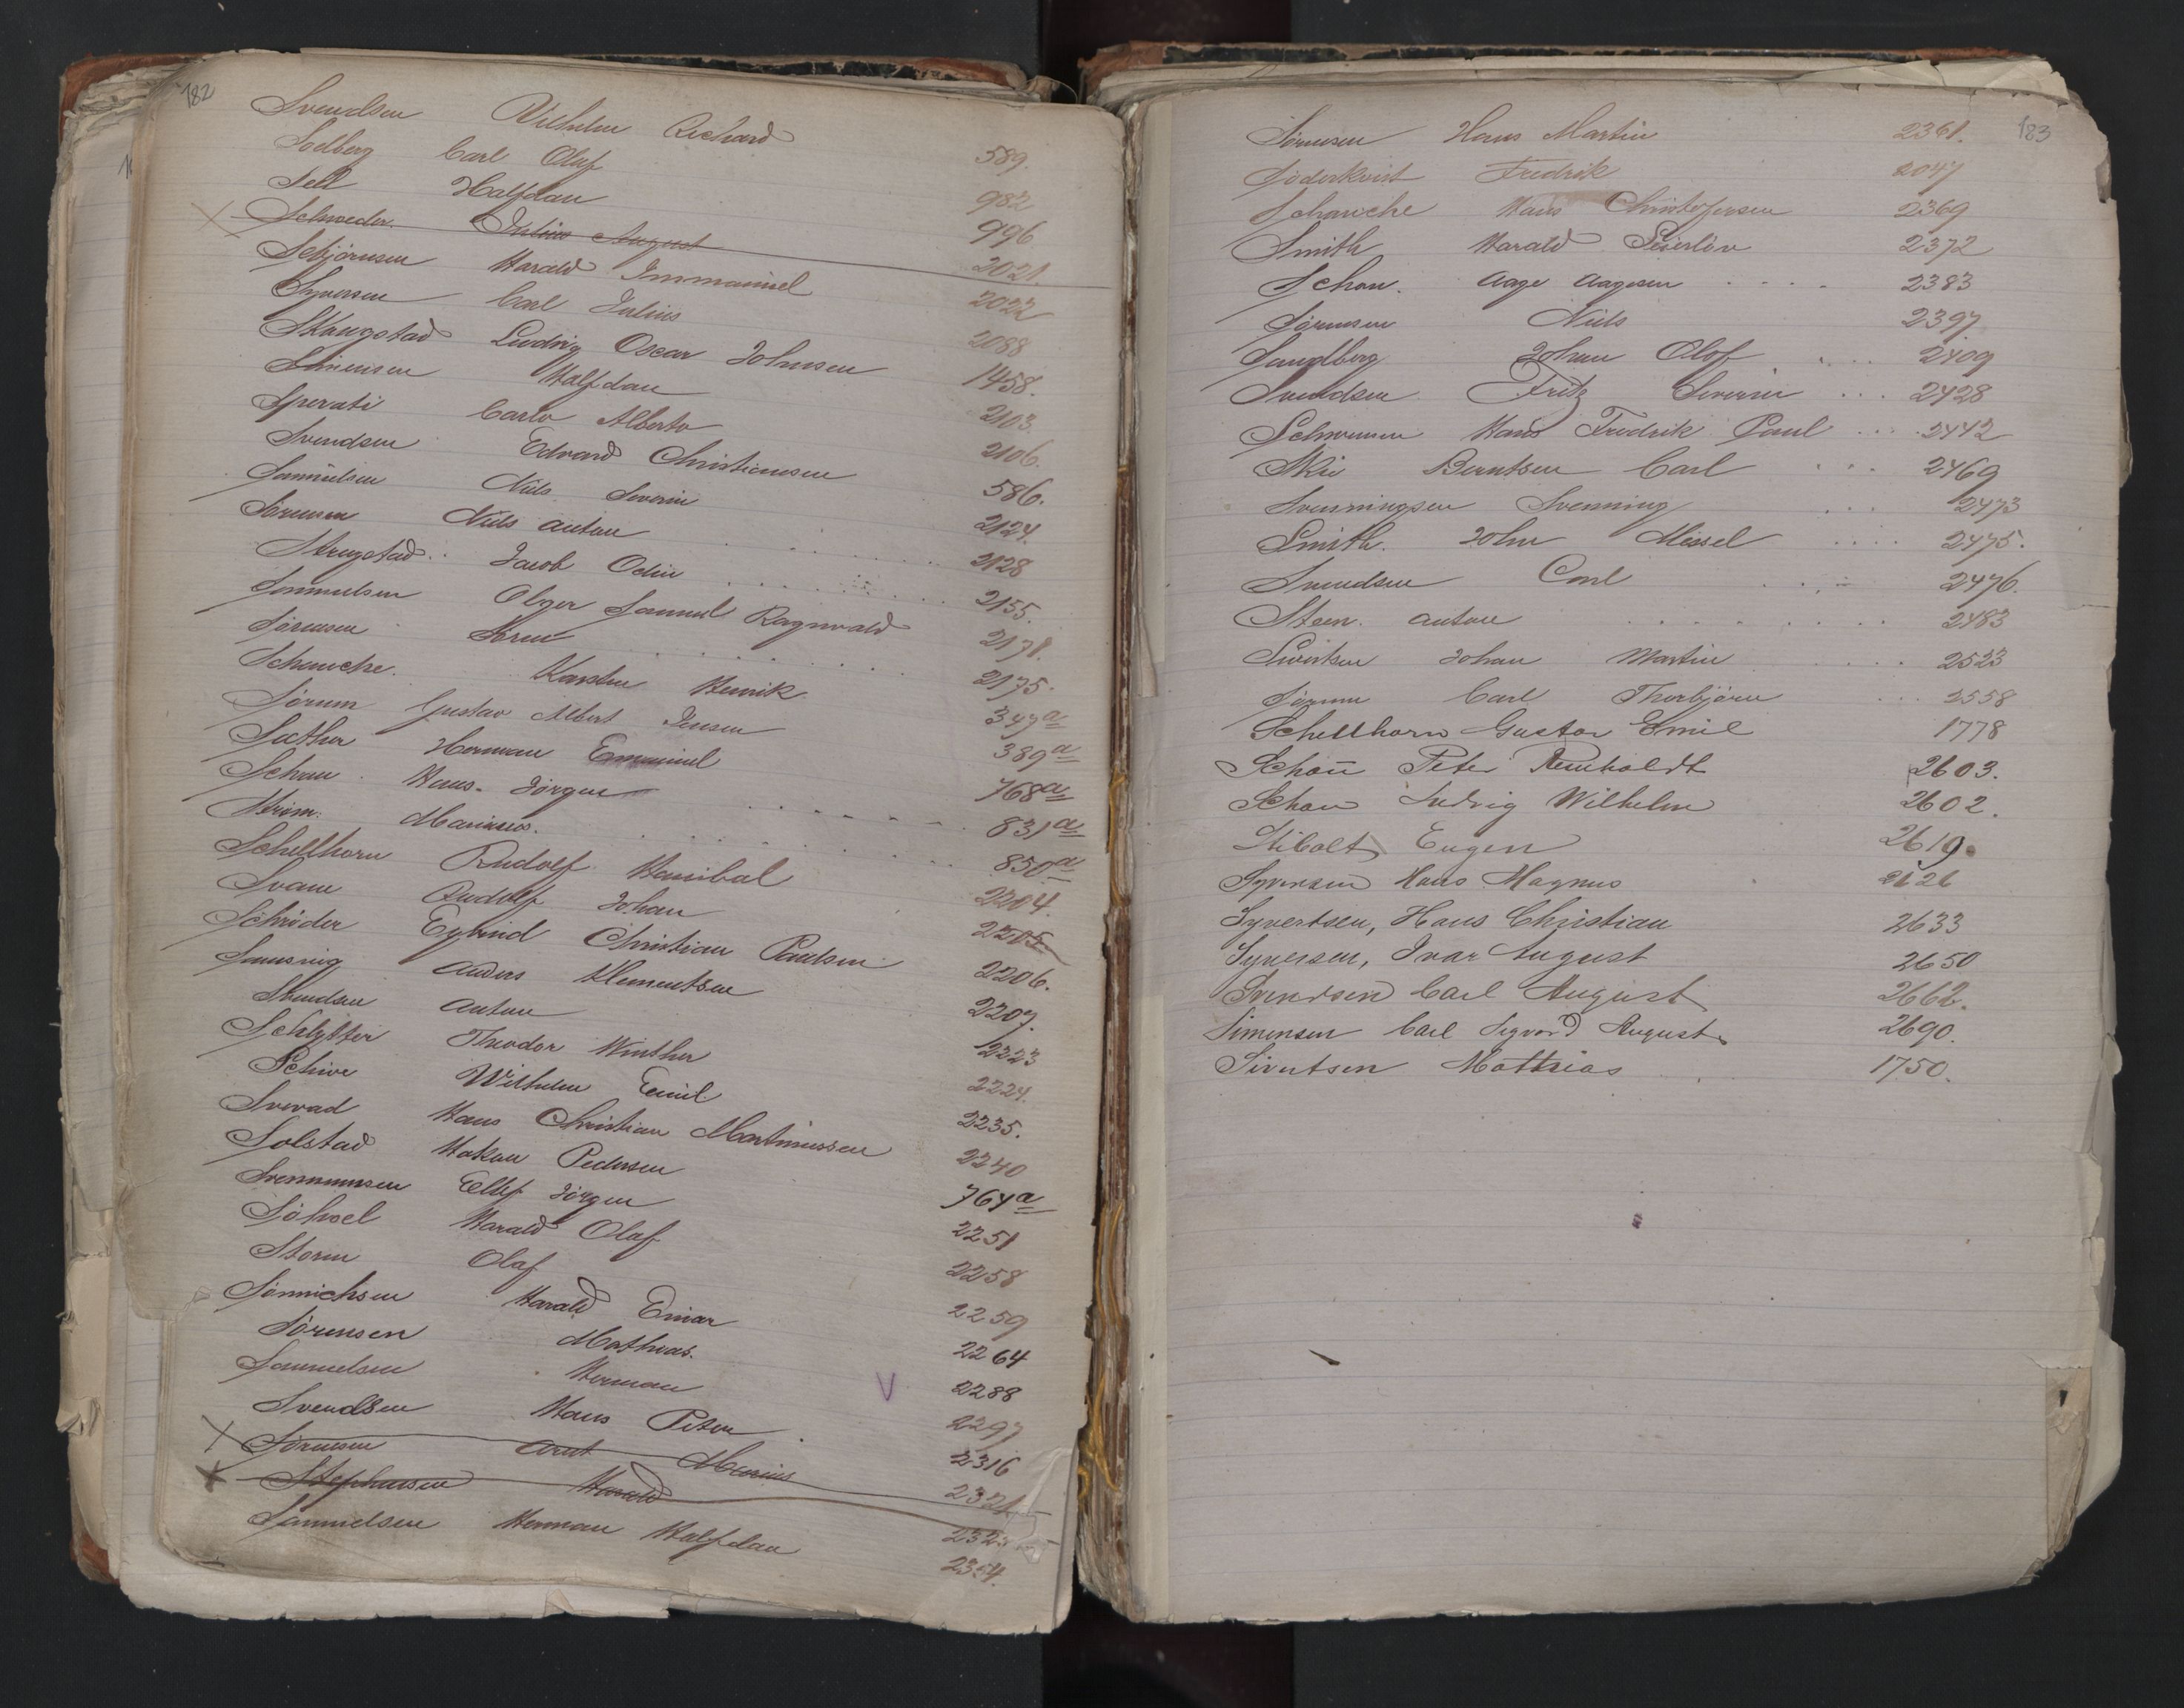 182
Svendsen Vilhelm Richard 589.
Solberg Carl Olaf 982
Sell Halfdan 996
Schroeder Julius August 2021.
Sebjörnsen Harald Immanuel 2022
Syversen Carl Julius 2088
Skaugstad Ludvig Oscar Johnsen 1458.
Simensen Halfdan 2103.
Sperati Carlo Alberto 2106.
Svendsen Edvard Christiansen 586.
Samuelsen Niels Severin 2124.
Sörensen Niels Anton 2128
Strugstad Jacob Odin 2155.
Samuelsen Olger Samuel Ragnvald 2171.
Sörensen Sören 2175.
Schanche. Karsten Henrik 347a
Sörum Gustav Albert Jensen 389a
Sæther Herman Emanuel 768a
Schou Hans Jörgen 831a
Ström. Marinius. 850a
Schellhorn Rudolf Hanibal 2204.
Svane Rudolf Johan 2205
Schröder Eyvind Christian Paulsen 2206.
Samsvig Anders Klementsen 2207.
Svendsen Anton 2223
Schlytter Theodor Winther 2224.
Schive Wilhelm Emil 2235.
Sverad Hans Christian Martinussen 2240
Solstad Hakon Pedersen 764a
Svennumsen Ellef Jörgen 2251
Söhoel Harald Olaf 2258
Storm Olaf 2259
Sönnichsen Harald Einar 2264
Sörensen Mathias. 2288
Samuelsen Herman V 2297
Svendsen Hans Peter 2316
Sörensen Arnt Marius 2321
Stephansen Harald
Samuelsen Herman Halfdan 2354.
183
Sörensen Hans Martin 2361.
Söderkvist Fredrik 2047
Schanche Hans Christofersen 2369
Smith Harald Seierlöv 2372
Schou. Aage Aagesen 2383
Sörensen Niels 2397
Sandberg Johan Olof 2409
Svendsen Fritz Severin 2428
Schwensen Hans Fredrik Paul 2442
Skii Berntsen Carl 2469
Svenningsen Svenning 2473
Smith. John Missel 2475.
Svendsen Carl 2476.
Steen. Anton 2483
Sivertsen Johan Martin 2523
Sörum Carl Thorbjörn 2558
Schellhorn Gustav Emil 1778
Schou Peter Reinholdt 2603.
Schou Ludvig Wilhelm 2602.
Stibolt Eugen 2619.
Syversen Hans Magnus 2626
Syvertsen, Hans Christian 2633
Syversen, Ivar August 2650
Svendsen Carl August 2662.
Simensen Carl Sigvard August 2690.
Sivertsen Mathias 1750.